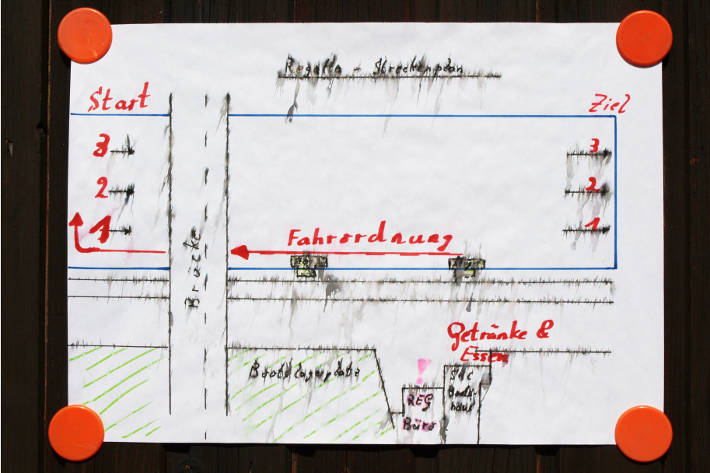 Regatta - Streckenplan
Start
Ziel
3
2
1
3
2
1
Fahrordnung
Brücke
Getränke &
Essen
Bootslagerplatz
REG
Büro
Boots
haus